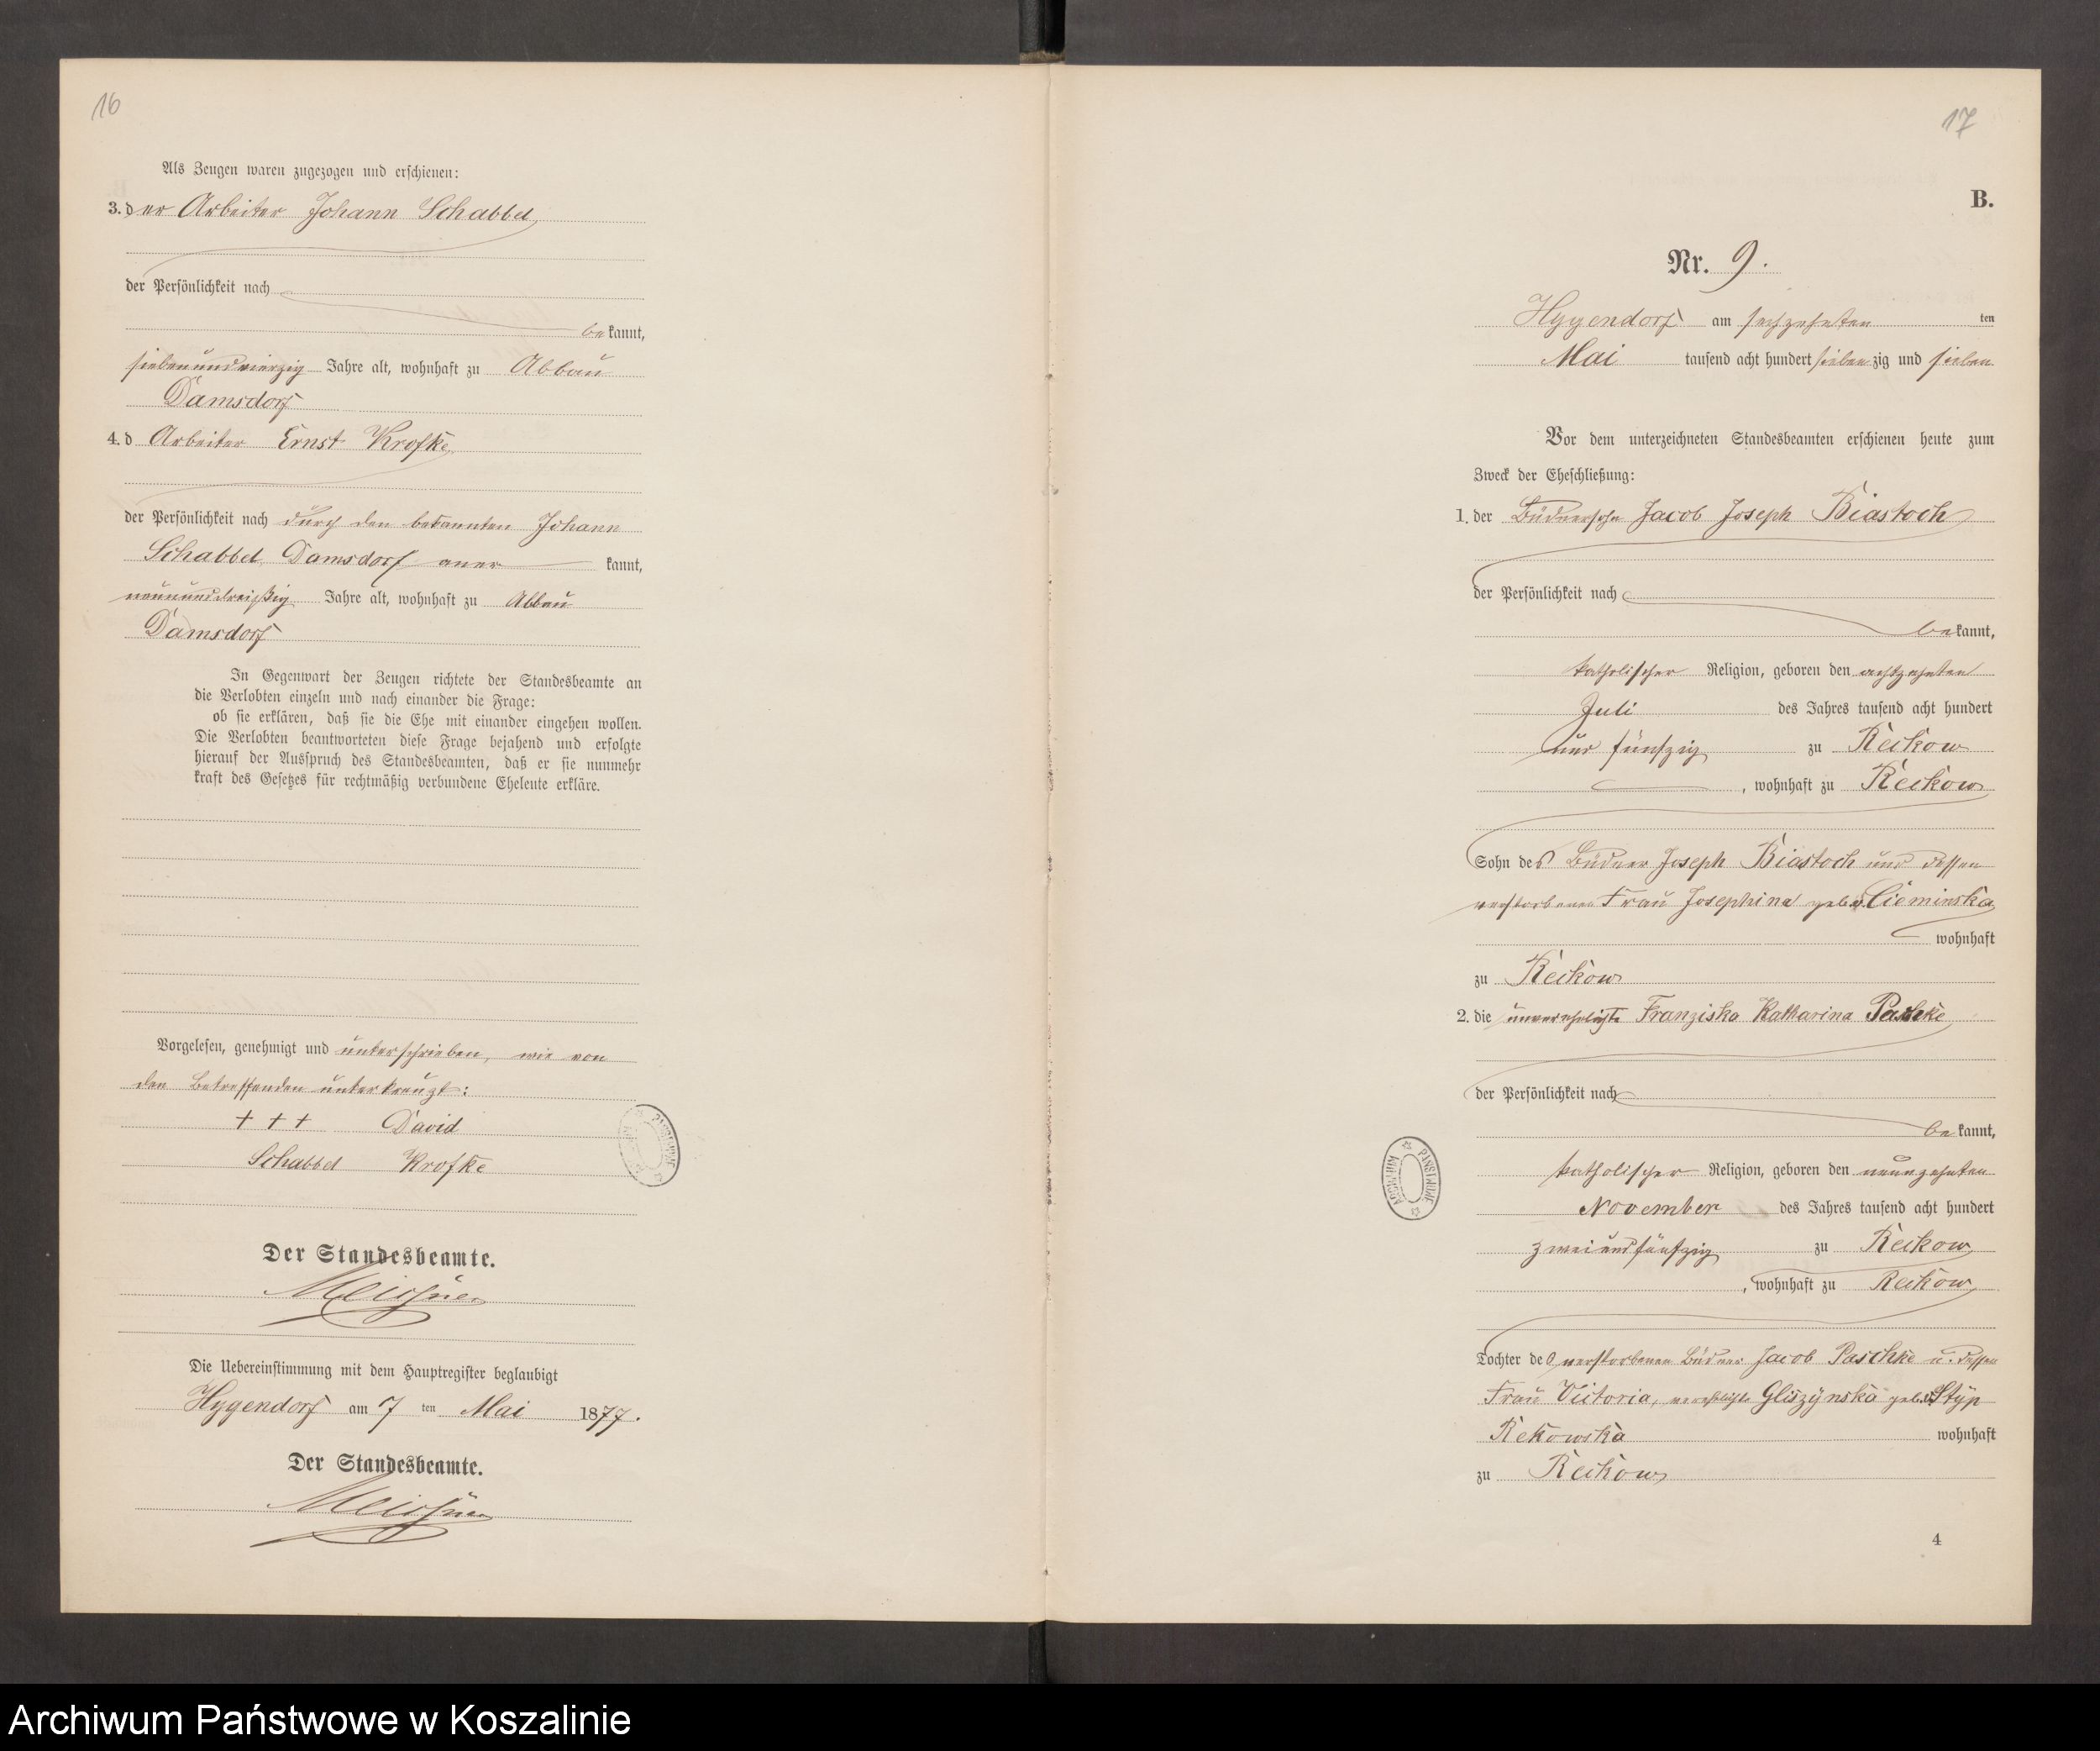 16
Als Zeugen waren zugezogen und erschienen:
3. der Arbeiter Johann Schabbel
der Persönlichkeit nach
bekannt,
siebenundvierzig Jahre alt, wohnhaft zu Abbau
Damsdorf
4. d Arbeiter Ernst Krofke
der Persönlichkeit nach durch den bekannten Johann
Schabbel Damsdorf aner kannt,
neununddreißig Jahre alt, wohnhaft zu Abbau
Damsdorf
In Gegenwart der Zeugen richtete der Standesbeamte an
die Verlobten einzeln und nach einander die Frage:
ob sie erklären, daß sie die Ehe mit einander eingehen wollen.
Die Verlobten beantworteten diese Frage bejahend und erfolgte
hierauf der Ausspruch des Standesbeamten, daß er sie nunmehr
kraft des Gesetzes für rechtmäßig verbundene Eheleute erkläre.
Vorgelesen, genehmigt und unterschrieben, wie von
den Betreffenden unterkreuzt:
+ + + David
Schabbel Krofke
Der Standesbeamte.
Meissner
Die Uebereinstimmung mit dem Hauptregister beglaubigt
Hygendorf am 7 ten Mai 1877.
Der Standesbeamte.
Meissner
17
B.
Nr. 9.
Hygendorf am sechzehnten ten
Mai tausend acht hundert siebenzig und sieben
Vor dem unterzeichneten Standesbeamten erschienen heute zum
Zweck der Eheschließung:
1. der Büdnersohn Jacob Joseph Biastoch
der Persönlichkeit nach
bekannt,
katholischer Religion, geboren den achtzehnten
Juli des Jahres tausend acht hundert
und fünfzig zu Reckow
, wohnhaft zu Reckow
Sohn des Büdner Joseph Biastoch und dessen
verstorbenen Frau Josephine geb. v. Cieminska
wohnhaft
zu Reckow
2. die unverehelichte Franziska Katharina Paschke
der Persönlichkeit nach
bekannt,
katholischer Religion, geboren den neunzehnten
November des Jahres tausend acht hundert
zweiundfünfzig zu Reckow
, wohnhaft zu Reckow
Tochter des verstorbenen Büdner Jacob Paschke u. dessen
Frau Victoria, verehelichte Gliszynska geb. v. Styp
Rekowska wohnhaft
zu Reckow
4
ARCHIWUM PAŃSTWOWE
Archiwum Państwowe w Koszalinie